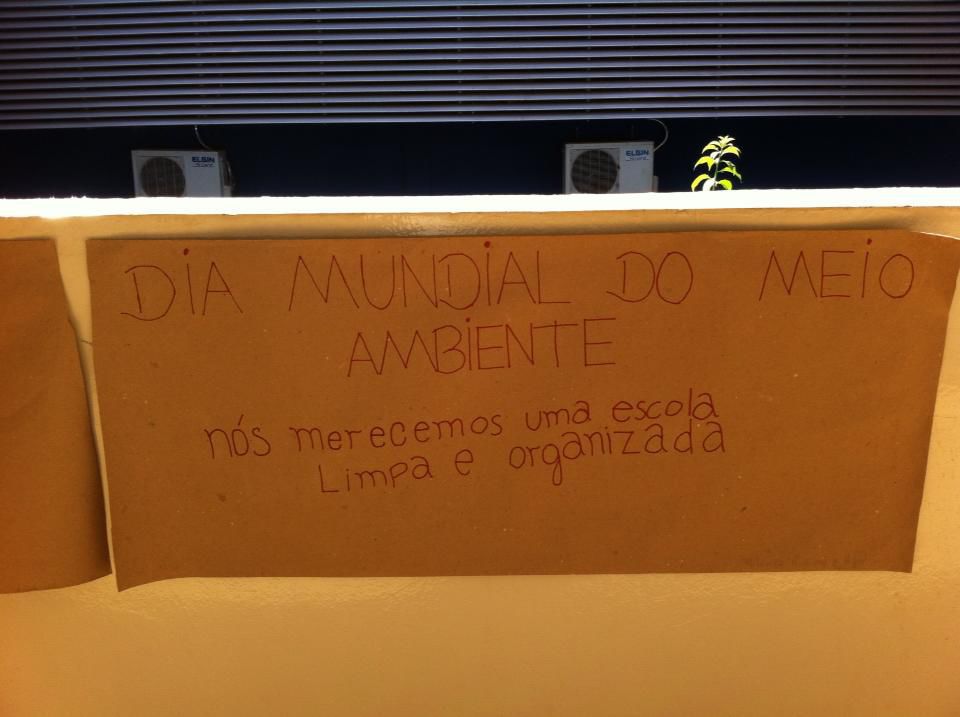 ELGIN
ELGIN
DiA MUNDiAL DO MEiO
AMBiENTE
nós merecemos uma escola
Limpa e organizada